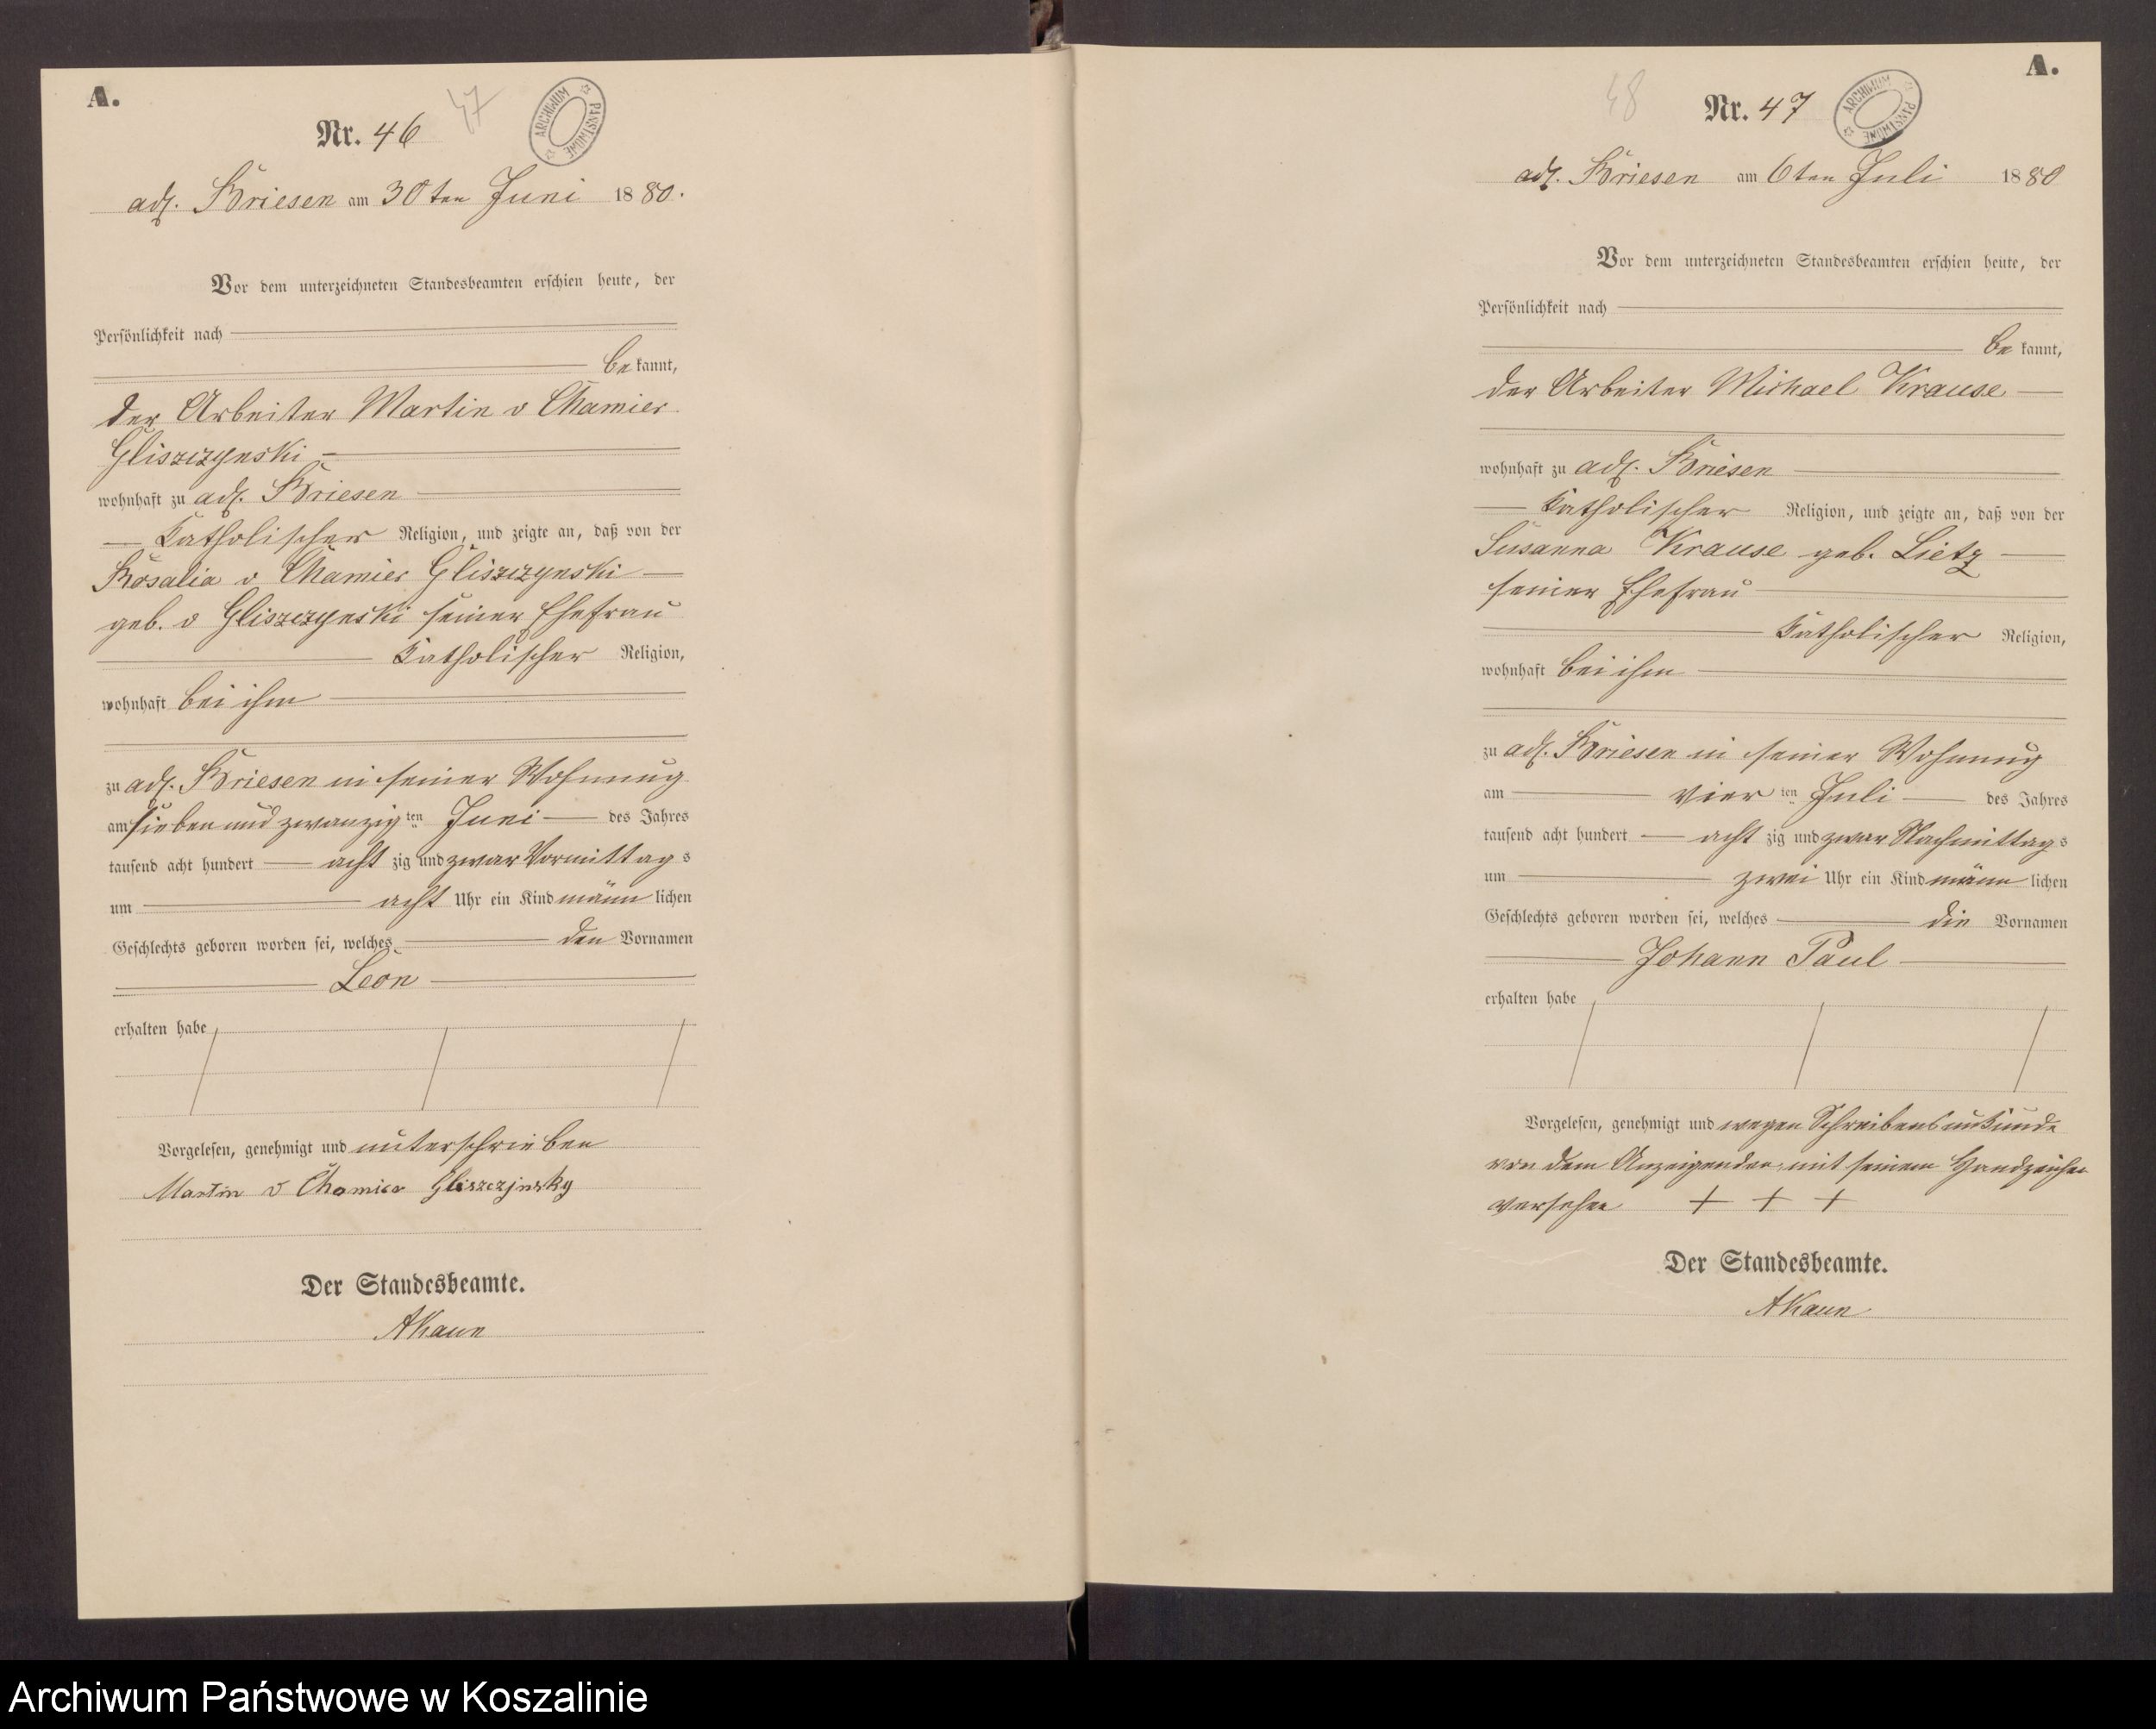 A.
Nr. 46
47
ARCHIWUM PAŃSTWOWE
adl. Briesen am 30ten Juni 1880.
Vor dem unterzeichneten Standesbeamten erschien heute, der
Persönlichkeit nach
be kannt,
der Arbeiter Martin v Chamier
Gliszczynski
wohnhaft zu adl. Briesen
katholischer Religion, und zeigte an, daß von der
Rosalia v Chamier Gliszczynski
geb. v Gliszczynski seiner Ehefrau
katholischer Religion,
wohnhaft bei ihm
zu adl. Briesen in seiner Wohnung
am sieben und zwanzig ten Juni des Jahres
tausend acht hundert acht zig und zwar Vormittag s
um acht Uhr ein Kind männ lichen
Geschlechts geboren worden sei, welches den Vornamen
Leon
erhalten habe
Vorgelesen, genehmigt und unterschrieben
Martin v Chamier Gliszczjnsky
Der Standesbeamte.
AKaun
A.
48
Nr. 47
ARCHIWUM PAŃSTWOWE
adl. Briesen am 6ten Juli 1880
Vor dem unterzeichneten Standesbeamten erschien heute, der
Persönlichkeit nach
be kannt,
der Arbeiter Michael Krause
wohnhaft zu adl. Briesen
katholischer Religion, und zeigte an, daß von der
Susanna Krause geb. Lietz
seiner Ehefrau
katholischer Religion,
wohnhaft bei ihm
zu adl. Briesen in seiner Wohnung
am vier ten Juli des Jahres
tausend acht hundert acht zig und zwar Nachmittag s
um zwei Uhr ein Kind männ lichen
Geschlechts geboren worden sei, welches die Vornamen
Johann Paul
erhalten habe
Vorgelesen, genehmigt und wegen Schreibensunkunde
von dem Anzeigenden mit seinem Handzeichen
versehen + + +
Der Standesbeamte.
AKaun
Archiwum Państwowe w Koszalinie